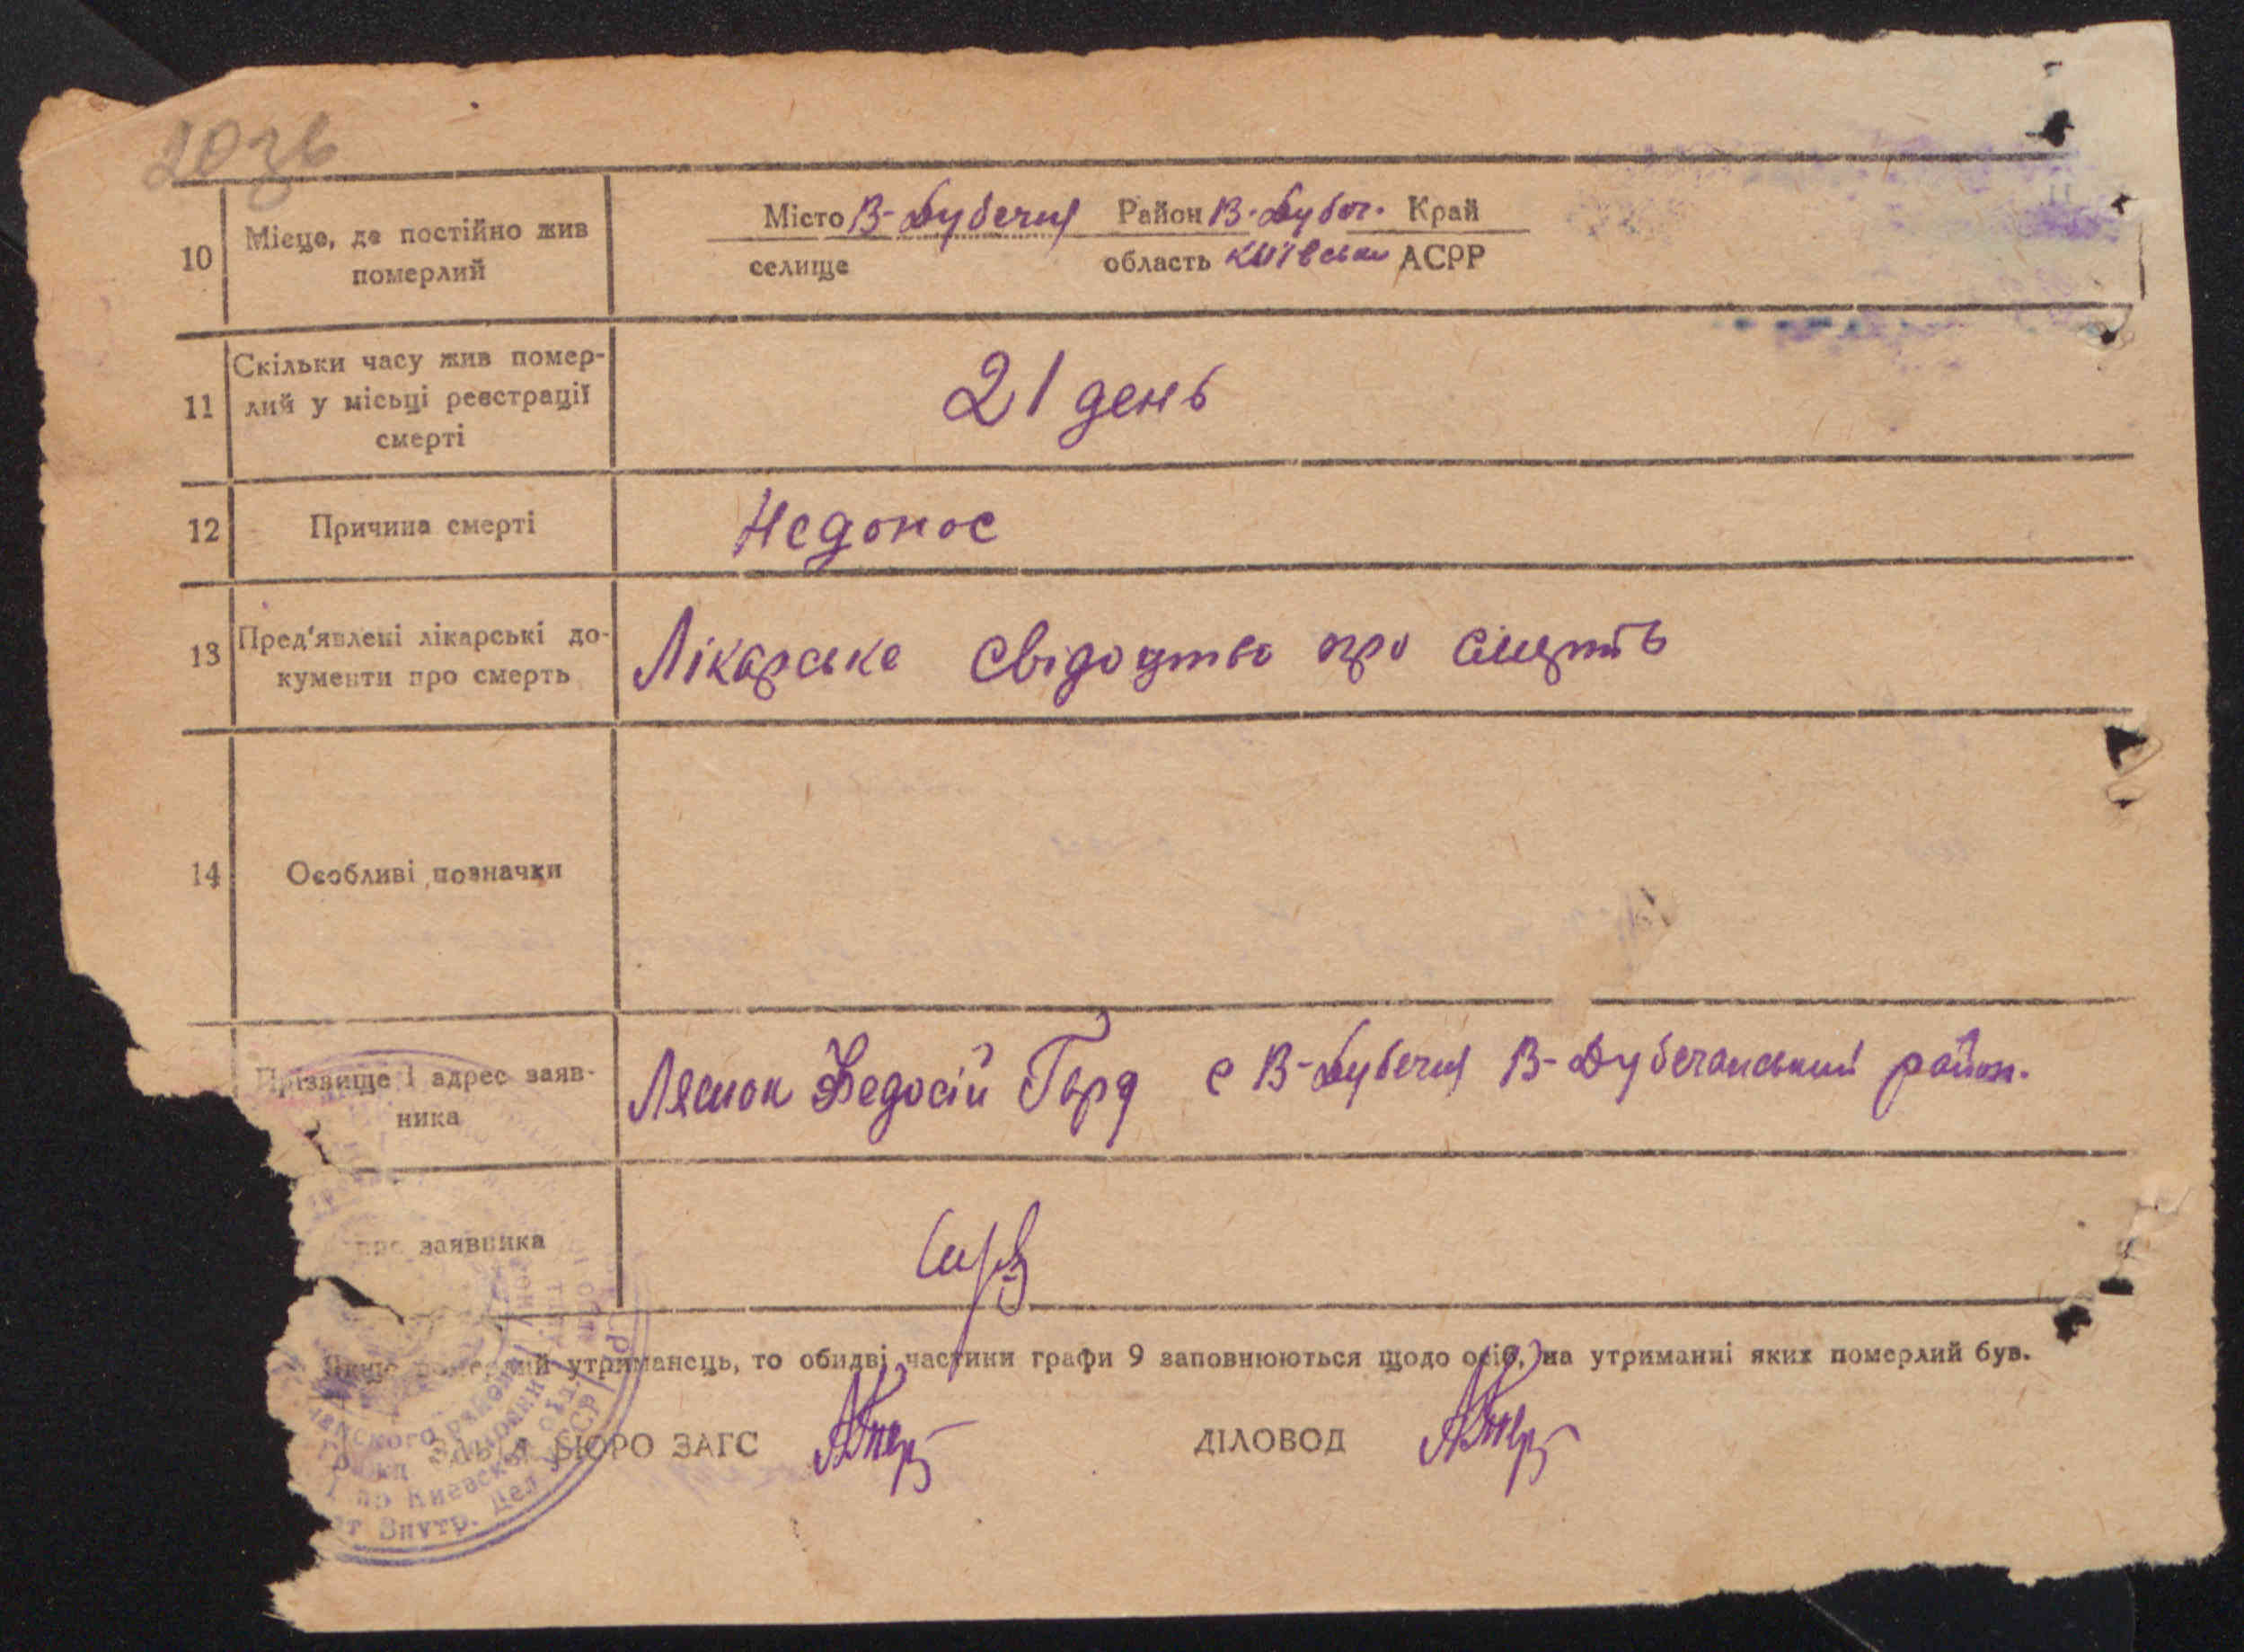 10 Місце, де постійно жив Місто В-Дубечня Район В.Дубеч. Край
померлий селище область київська АСРР
11 Скільки часу жив помер-
лий у місьці реєстрації 21 день
смерті
12 Причина смерті Недонос
13 Пред'явлені лікарські до-
кументи про смерть Лікарське свідоцтво про смерть
14 Особливі позначки
Прізвище і адрес заяв- Федосій с В-Дубечня В-Дубечанський район.
ника
заявника
утриманець, то обидві частини графи 9 заповнюються щодо осіб, на утриманні яких померлий був.
БЮРО ЗАГС ДІЛОВОД